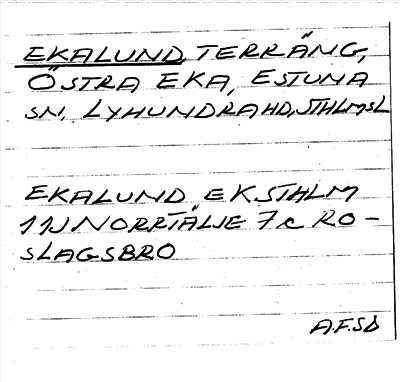 EKALUND, TERRÄNG,
ÖSTRA EKA, ESTUNA
SN, LYHUNDRAHD, STHLMSL
EKALUND EK STHLM
11J NORRTÄLJE 7c RO-
SLAGSBRO
A.F.SD